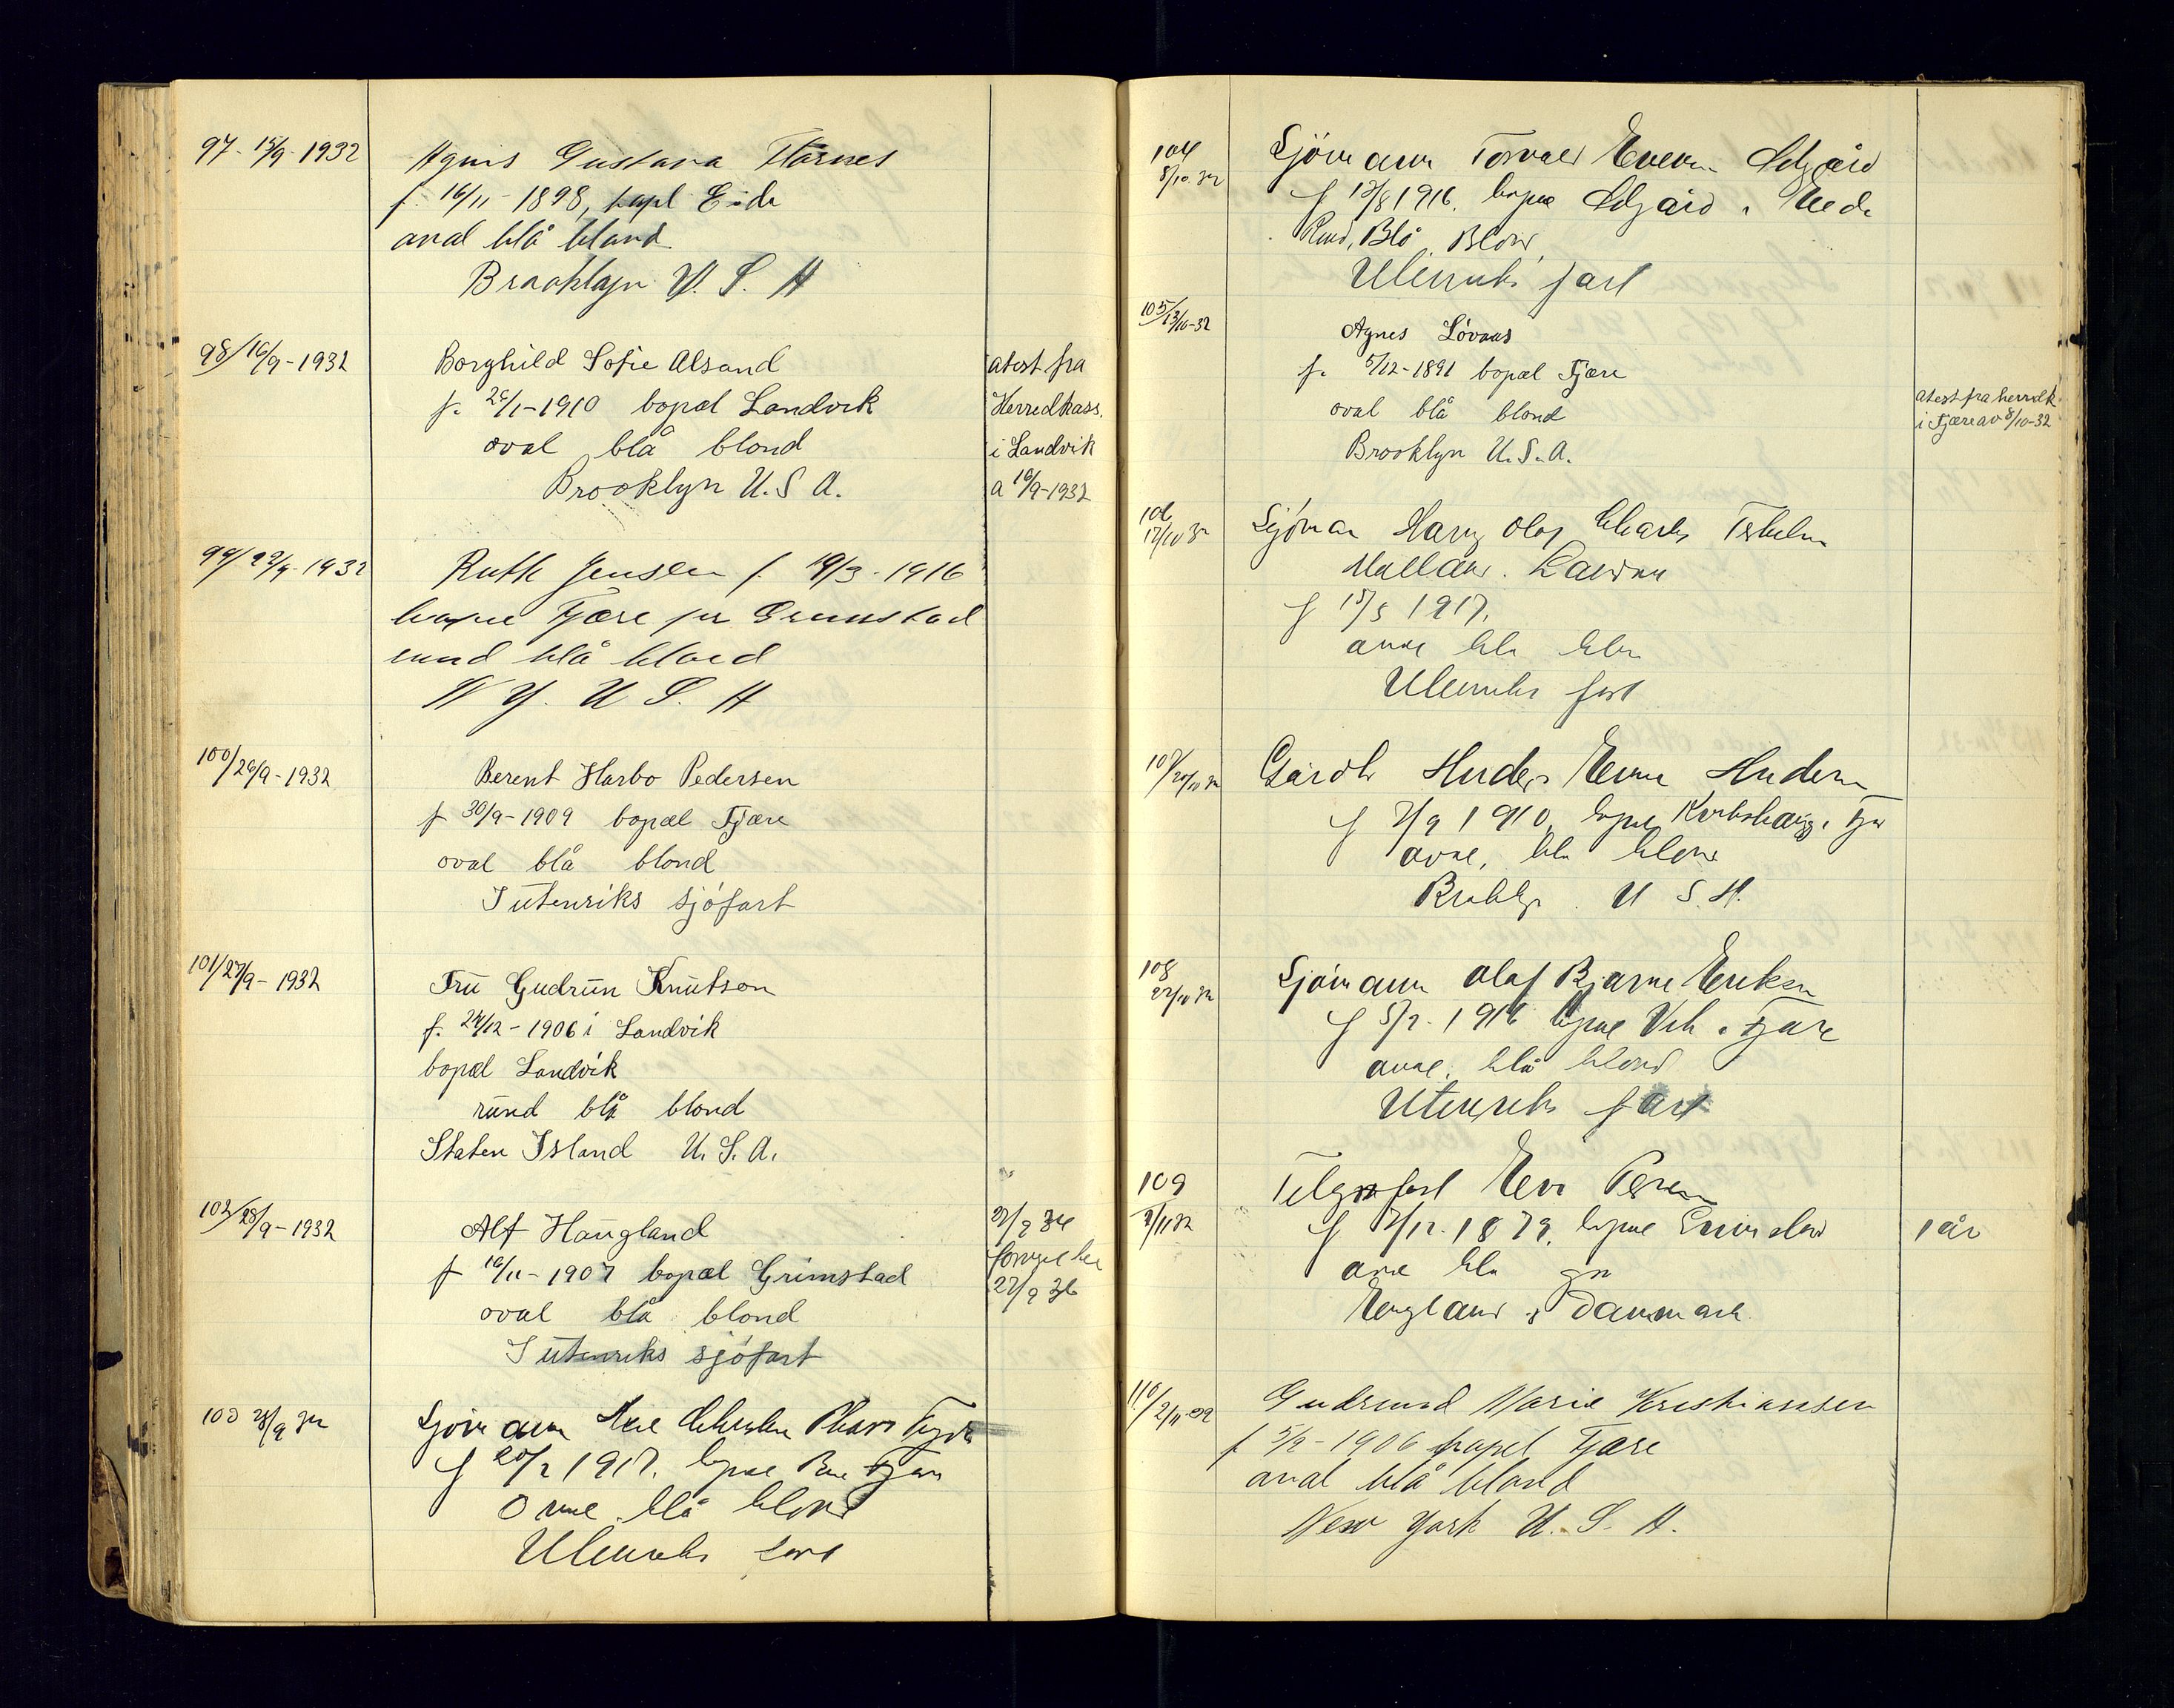 97 - 15/9 - 1932
Agnes Gustava
f. 16/11 - 1898, bopel Eide
oval blå blond.
Brooklyn U. S. A
98/16/9 - 1932
Borghild Sofie Alsand
f. 26/1 - 1910 bopæl Landvik
oval blå blond
Brooklyn U. S. A.
atest fra
Herredkass.
i Landvik
a 16/9 - 1932
99/22/9 - 1932
Ruth Jensen f. 19/3 - 1916
bopæl Fjære pr Grimstad
rund blå blond
N Y. U S. A
100/26/9 - 1932
Berent Harbo Pedersen
f 30/9 - 1909 bopæl Fjære
oval blå blond
I utenriks sjøfart
101/27/9 - 1932
Fru Gudrun Knutson
f. 24/12 - 1906 i Landvik
bopæl Landvik
rund blå blond
Staten Island U. S. A.
102/28/9 - 1932
Alf Haugland
f 16/11 - 1907 bopæl Grimstad
oval blå blond
I utenriks sjøfart
27/9 34
27/9 36
103 28/9 32
Sjømann
f 20/2 1917. bopæl Fjære
Ovale blå blond
Utenriks fart
104
8/10 32
Sjømann Torvald
f 12/8 1916. bopæl
Rund, Blå Blond
Utenriks fart
105/13/10 - 32
Agnes Løvaas
f. 5/12 - 1891 bopæl Fjære
oval blå blond
Brooklyn U. S. A.
atest fra herredk
i Fjære av 8/10 - 32
106
17/10 32
Sjøman Harry Olaf Charles
f 18/5 1917.
ovale blå blond
Utenriks fart
107/20/10 32
Anders
f 7/9 1910, bopæl Fjære
ovale, blå blond
Brooklyn U S. A.
108
22/10 32
Sjømann Olaf Bjarne Eriksen
f 5/2 - 1916 bopæl Vik i Fjære
ovale, blå blond
Utenriks fart
109
2/11 32
f 7/12 - 1879. bopæl Grimstad
ovale blå grå
England & Danmark
1 år
110/2/11 - 32
Gudrund Marie Kristiansen
f 5/2 - 1906 bopel Fjære
oval blå blond
New York U. S. A.